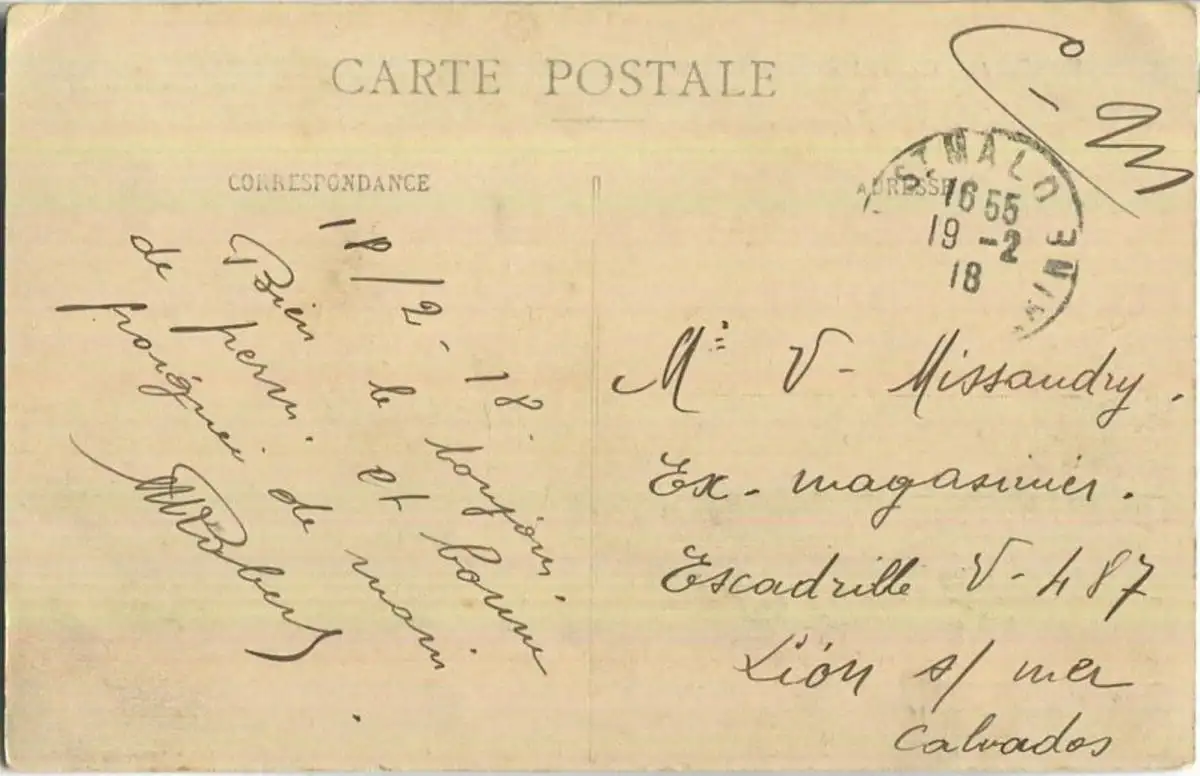 CARTE POSTALE
CORRESPONDANCE
ADRESSE
ST MALO
16 55
19 -2
18
C-M
18/2-18.
Bien le toujours
de perm. et bonne
poignée de main
Robert
Mr V- Missaudry.
Ex-magasinier.
Escadrille V-487
Lion s/ mer
Calvados